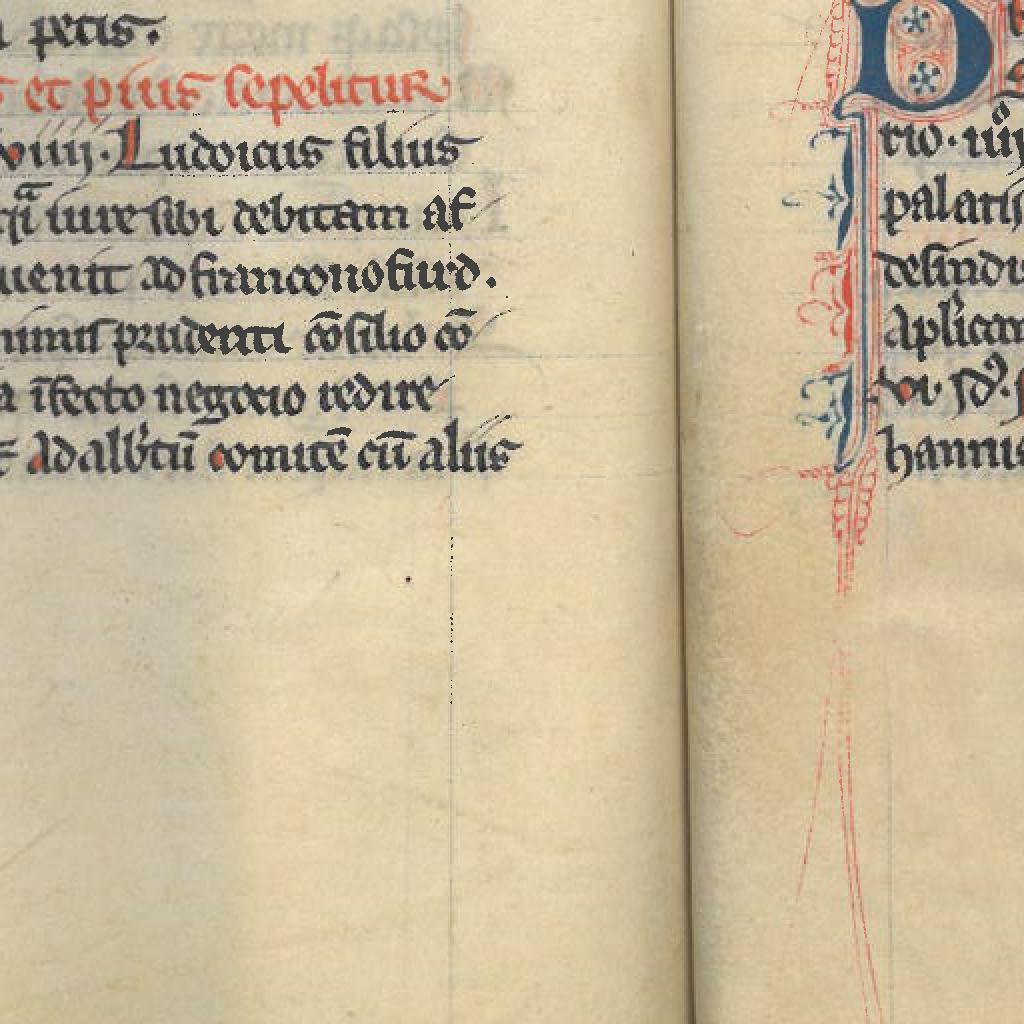 petis.
et pius sepelitur
viiii. Ludoicus filius
iure sibi debitam af
uenit ad franconofurd.
nimis prudenti cōsilio cō
īfecto negocio redire
ad alb̓tū comitē cū aliis
tio. iiij
palatis
desindi
aplican
vi. id᷒.
hannis